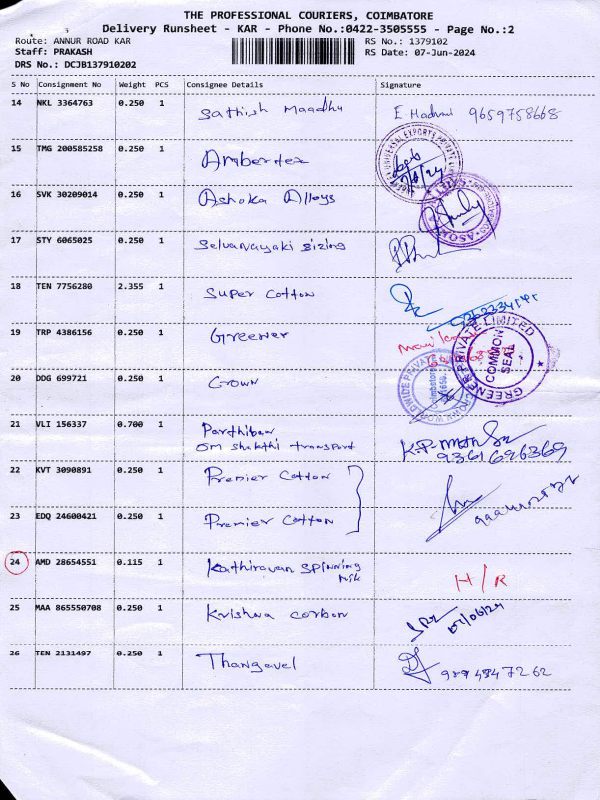 THE PROFESSIONAL COURIERS, COIMBATORE
Delivery Runsheet - KAR - Phone No.:0422-3505555 - Page No.:2
Route: ANNUR ROAD KAR
RS No.: 1379102
Staff: PRAKASH
RS Date: 07-Jun-2024
DRS No.: DCJB137910202
S No Consignment No Weight PCS Consignee Details Signature
14 NKL 3364763 0.250 1 Sathish Maadhu 9659758668
15 TMG 200585258 0.250 1 Ambertex
16 SVK 30209014 0.250 1 Ashoka Alloys
17 STY 6065025 0.250 1 Selvanayaki sizing
18 TEN 7756280 2.355 1 Super Cotton
19 TRP 4386156 0.250 1 Greener
GREENER PRIVATE LIMITED
COMMON
SEAL
20 DDG 699721 0.250 1 Crown
21 VLI 156337 0.700 1 Parthiban
om shakthi transport
9361696369
22 KVT 3090891 0.250 1 Premier Cotton
23 EDQ 24600421 0.250 1 Premier Cotton
24 AMD 28654551 0.115 1 Kathiravan spinning
H/R
25 MAA 865550708 0.250 1 Krishna corbon 07/06/24
26 TEN 2131497 0.250 1 Thangavel